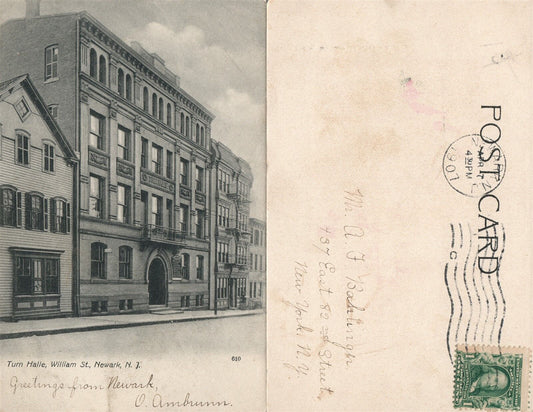 Turn Halle, William St., Newark, N. J.
610
Greetings from Newark,
O. Ambrunn.
POST CARD
4 30PM
1907
Mr. A. F. Bahlinger
437 East 82nd Street,
New York, N.Y.